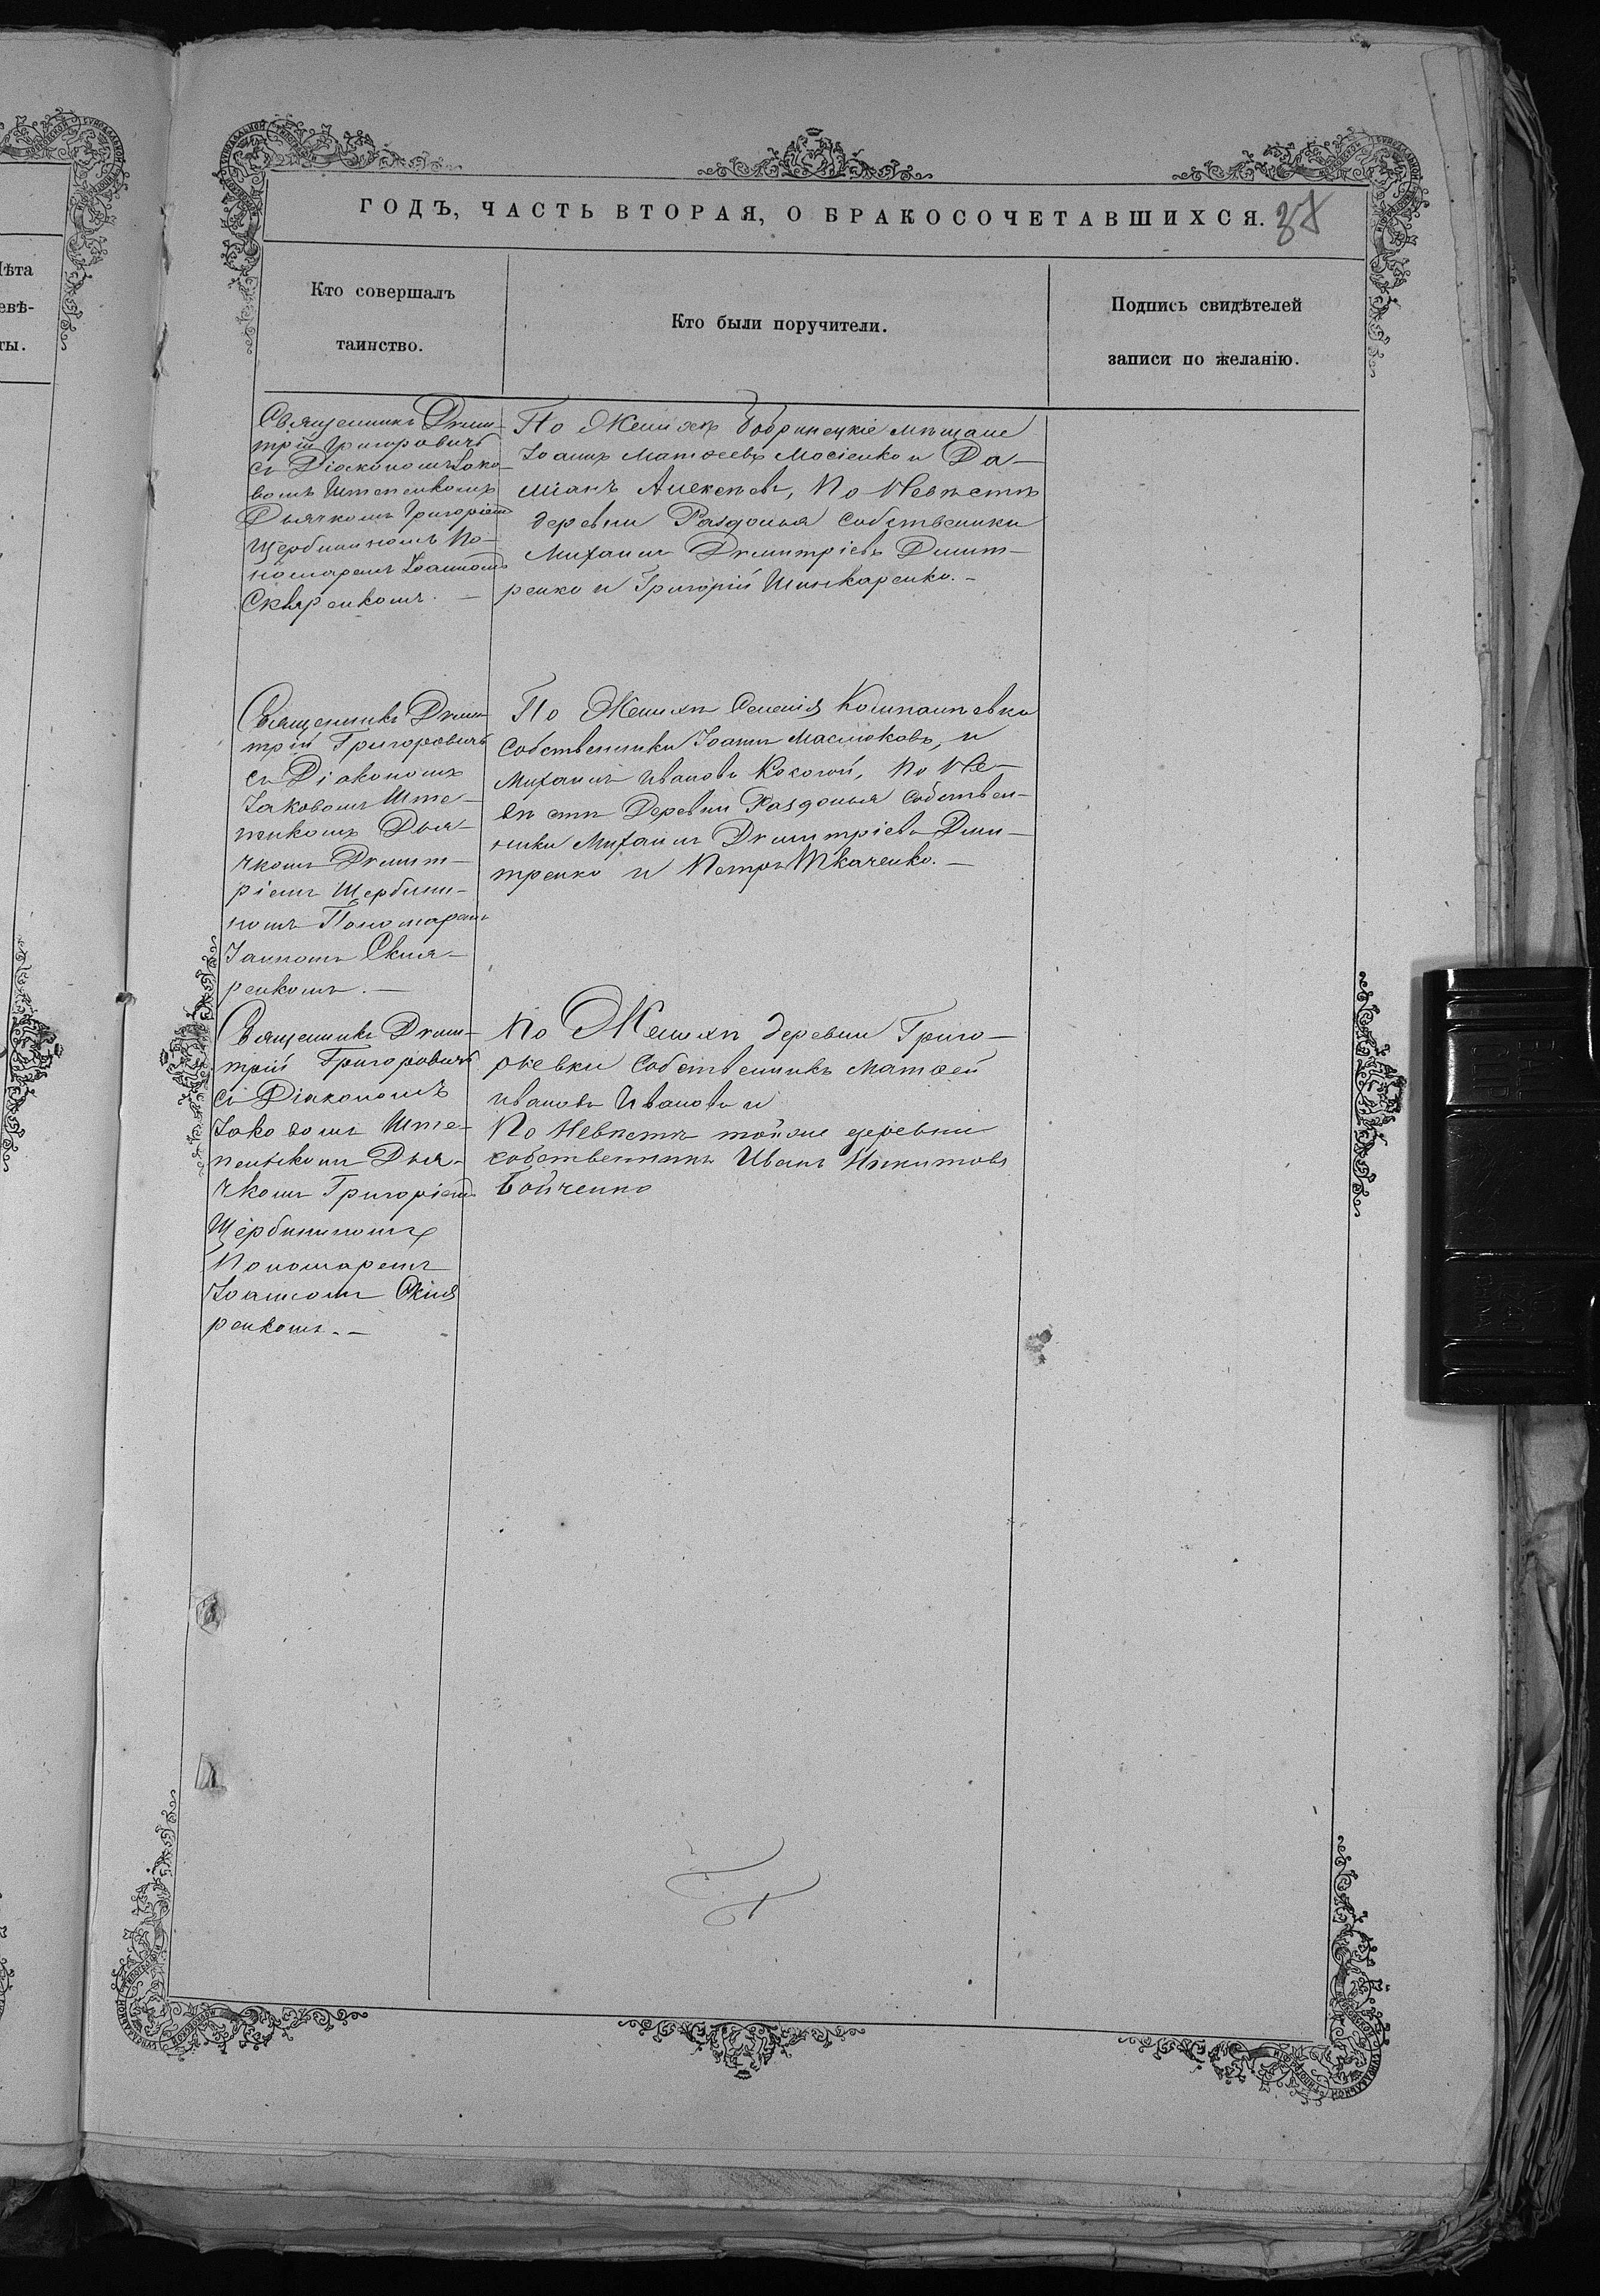 ГОДЪ, ЧАСТЬ ВТОРАЯ, О БРАКОСОЧЕТАВШИХСЯ.
Лѣта
евѣ-
ты.
Кто совершалъ
таинство.
Кто были поручители.
Подпись свидѣтелей
записи по желанію.
Священникъ Дими-
трій Григоровичъ
съ Діакономъ Іако-
вомъ Штепенкомъ
Дьячкомъ Григоріемъ
Щербининомъ По-
номаремъ Іоанномъ
Скляренкомъ. —
По Женихѣ Бобринецкіе мѣщане
Іоаннъ Матѳеевъ Мосіенко и Да-
міанъ Алексѣевъ, По Невѣстѣ
деревни Раздолья собственики
Михаилъ Димитріевъ Дмит-
ренко и Григорій Шинкаренко. —
Священникъ Дими-
трій Григоровичъ
съ Діакономъ
Іаковомъ Ште-
пенкомъ Дья-
чкомъ Димит-
ріемъ Щербини-
номъ Пономаремъ
Іанномъ Скля-
ренкомъ. —
По Женихѣ Селенія Компанѣевка
Собственники Іоаннъ Маслюковъ, и
Михаилъ Ивановъ Кокогой, По Не-
вѣстѣ Деревни Раздолья Собствен-
ники Михаилъ Димитріевъ Дми-
тренко и Петръ Ткаченко. —
Священникъ Дими-
трій Григоровичъ
съ Діакономъ
Іаковомъ Ште-
пенькомъ Дья-
чкомъ Григоріемъ
Щербининомъ
Пономаремъ
Іоанномъ Скля
ренкомъ. —
По Женихѣ деревни Григо-
рьевки Собственникъ Матѳей
Ивановъ Ивановъ и
По Невѣстѣ тойже деревни
собственникъ Иванъ Никитовъ
Бойченко